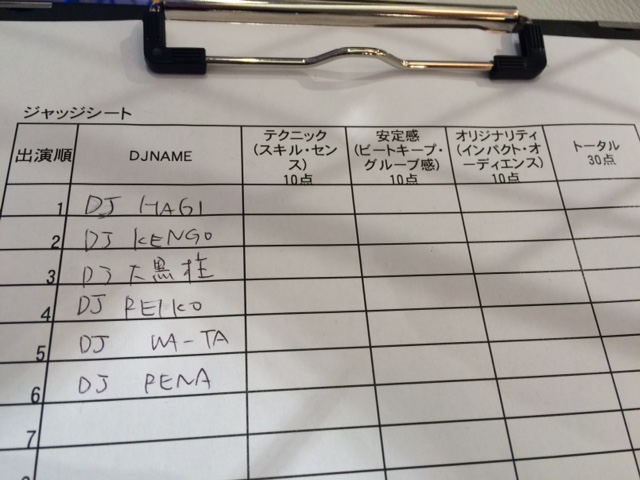 ジャッジシート
出演順 DJNAME テクニック(スキル・センス)10点 安定感(ビートキープ・グループ感)10点 オリジナリティ(インパクト・オーディエンス)10点 トータル30点
1 DJ HAGI
2 DJ KENGO
3 DJ 大黒柱
4 DJ REIKO
5 DJ WA-TA
6 DJ PENA
7